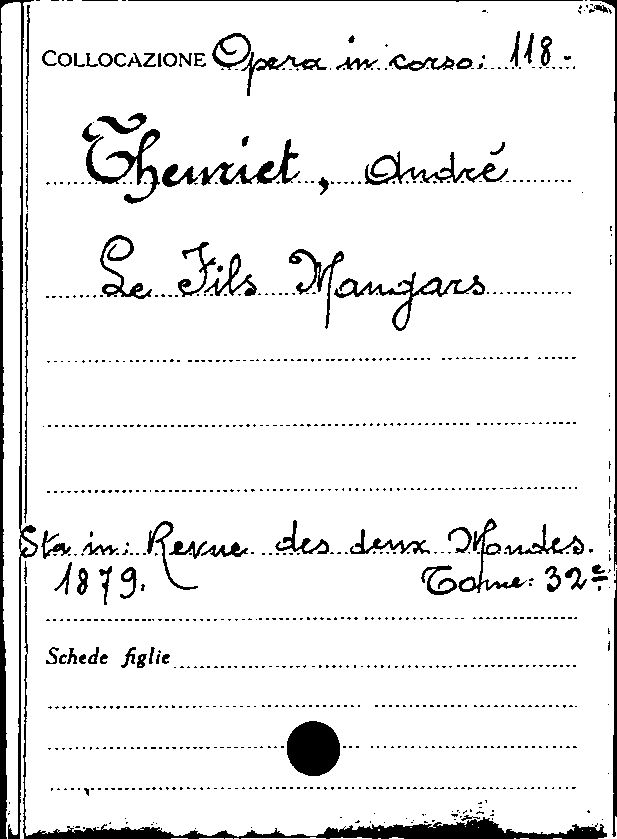 COLLOCAZIONE Opera in corso: 118.
Theuriet, André
Le Fils Maugars
Sta in: Revue des deux Mondes.
1879. Tome: 32e.
Schede figlie